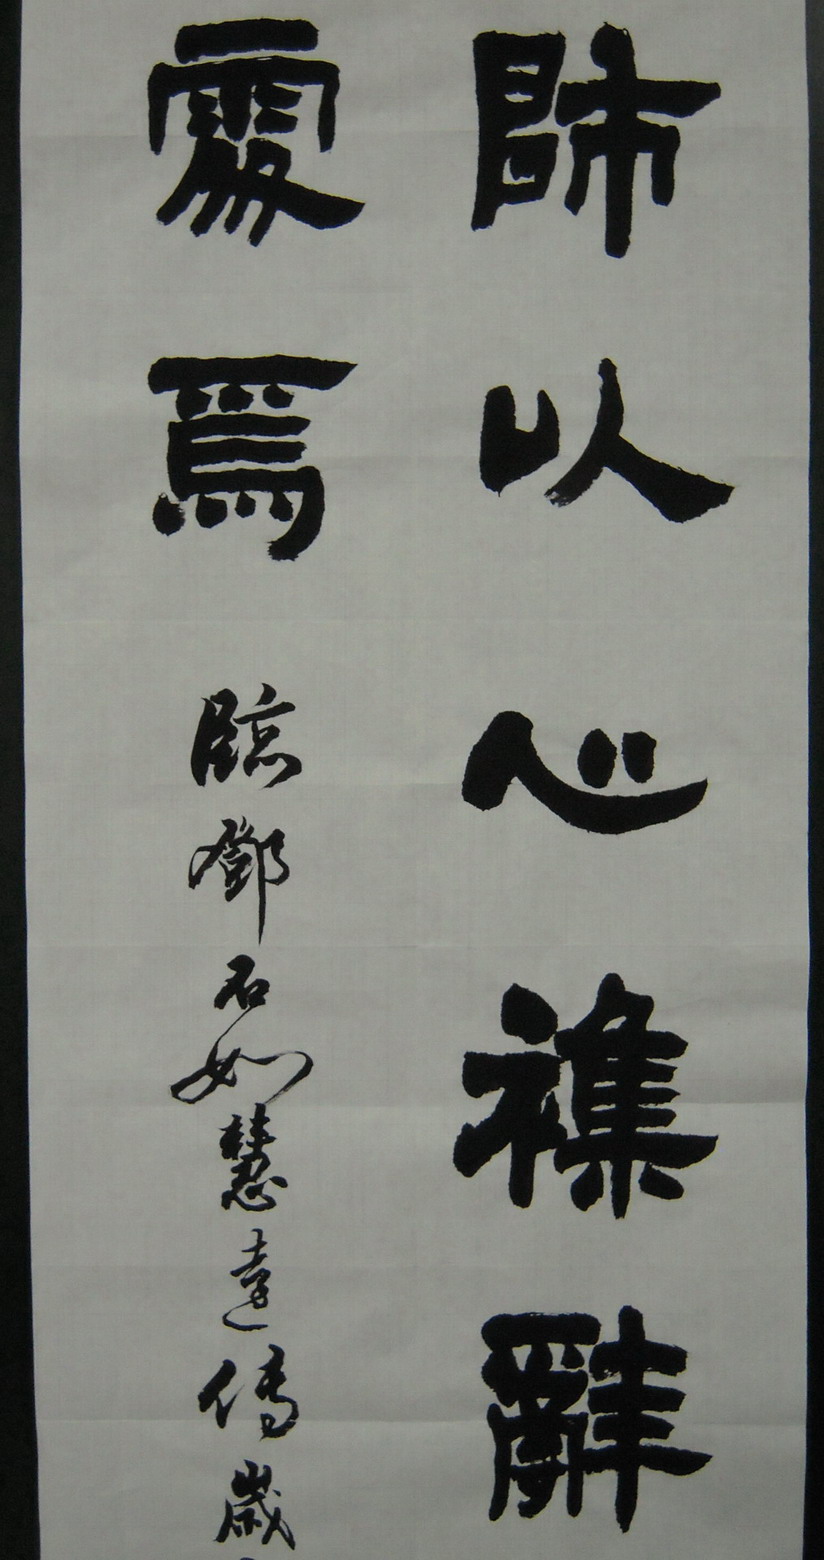 師以心襍辭
焉 臨鄧石如慧遠傳 歲